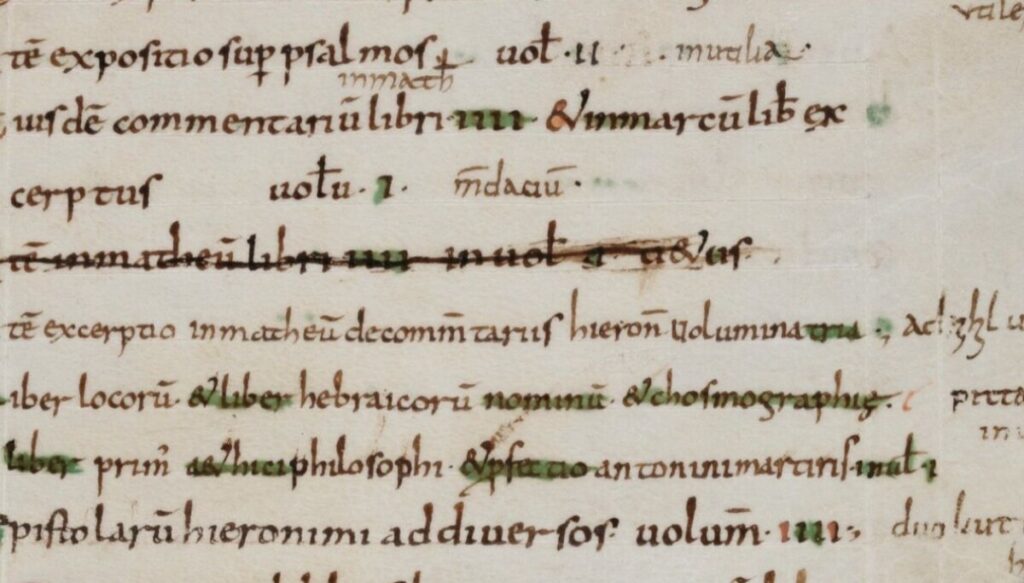 tē expositio sup psalmos uol · II · inutilia ·
inmath
iusdē commentariū libri · IIII · & inmarcū lib ex
cerptus uolu · I · m̄daciū ·
tē inmatheū libri IIII in uol uetus
tē excerptio inmatheū decomm̄tariis hieron̄ uolumina tria ;
iber locorū · & liber hebraicorū nominū · & chosmographię ·
liber prim̄ philosophi · antonini martiris · in uol I
pistolarū hieronimi ad diuersos uolum̄ · IIII ;